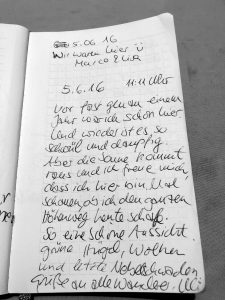 5.06 16
Wir waren hier ü
Marco &
5.6.16 11:11 Uhr
Vor fast genau einem
Jahr war ich schon hier
Und wieder ist es so
schwül und dampfig
Aber die Sonne kommt
raus und ich freue mich,
dass ich hier bin. Mal
schauen, ob ich den ganzen
Höhenweg heute schaff.
So eine schöne Aussicht
grüne Hügel, Wolken
und letzte Nebelschwaden.
Grüße an alle Wanderer.